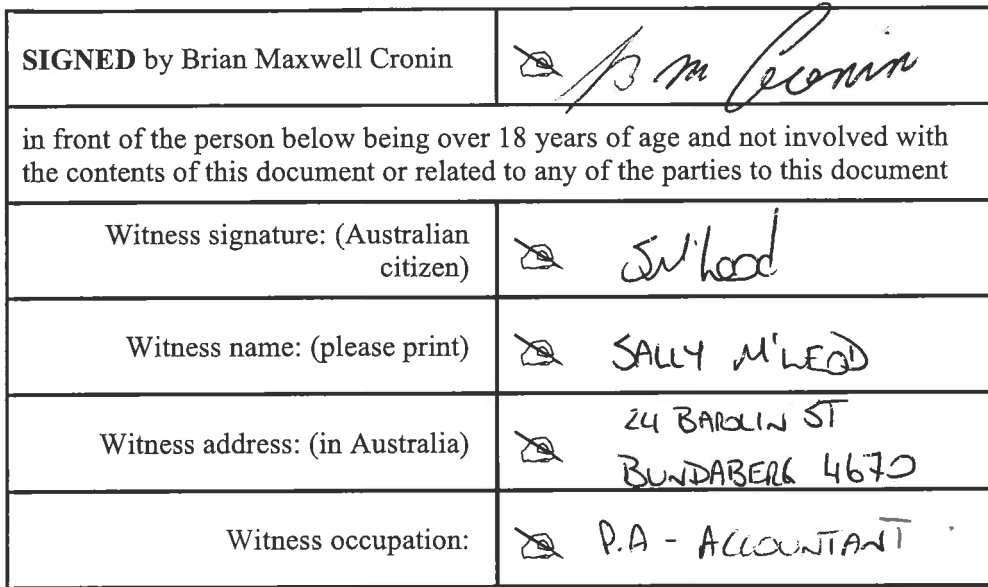 SIGNED by Brian Maxwell Cronin
B M Cronin
in front of the person below being over 18 years of age and not involved with
the contents of this document or related to any of the parties to this document
Witness signature: (Australian
citizen)
SM'Leod
Witness name: (please print)
SALLY M'LEOD
Witness address: (in Australia)
24 BAROLIN ST
BUNDABERG 4670
Witness occupation:
P.A - ACCOUNTANT